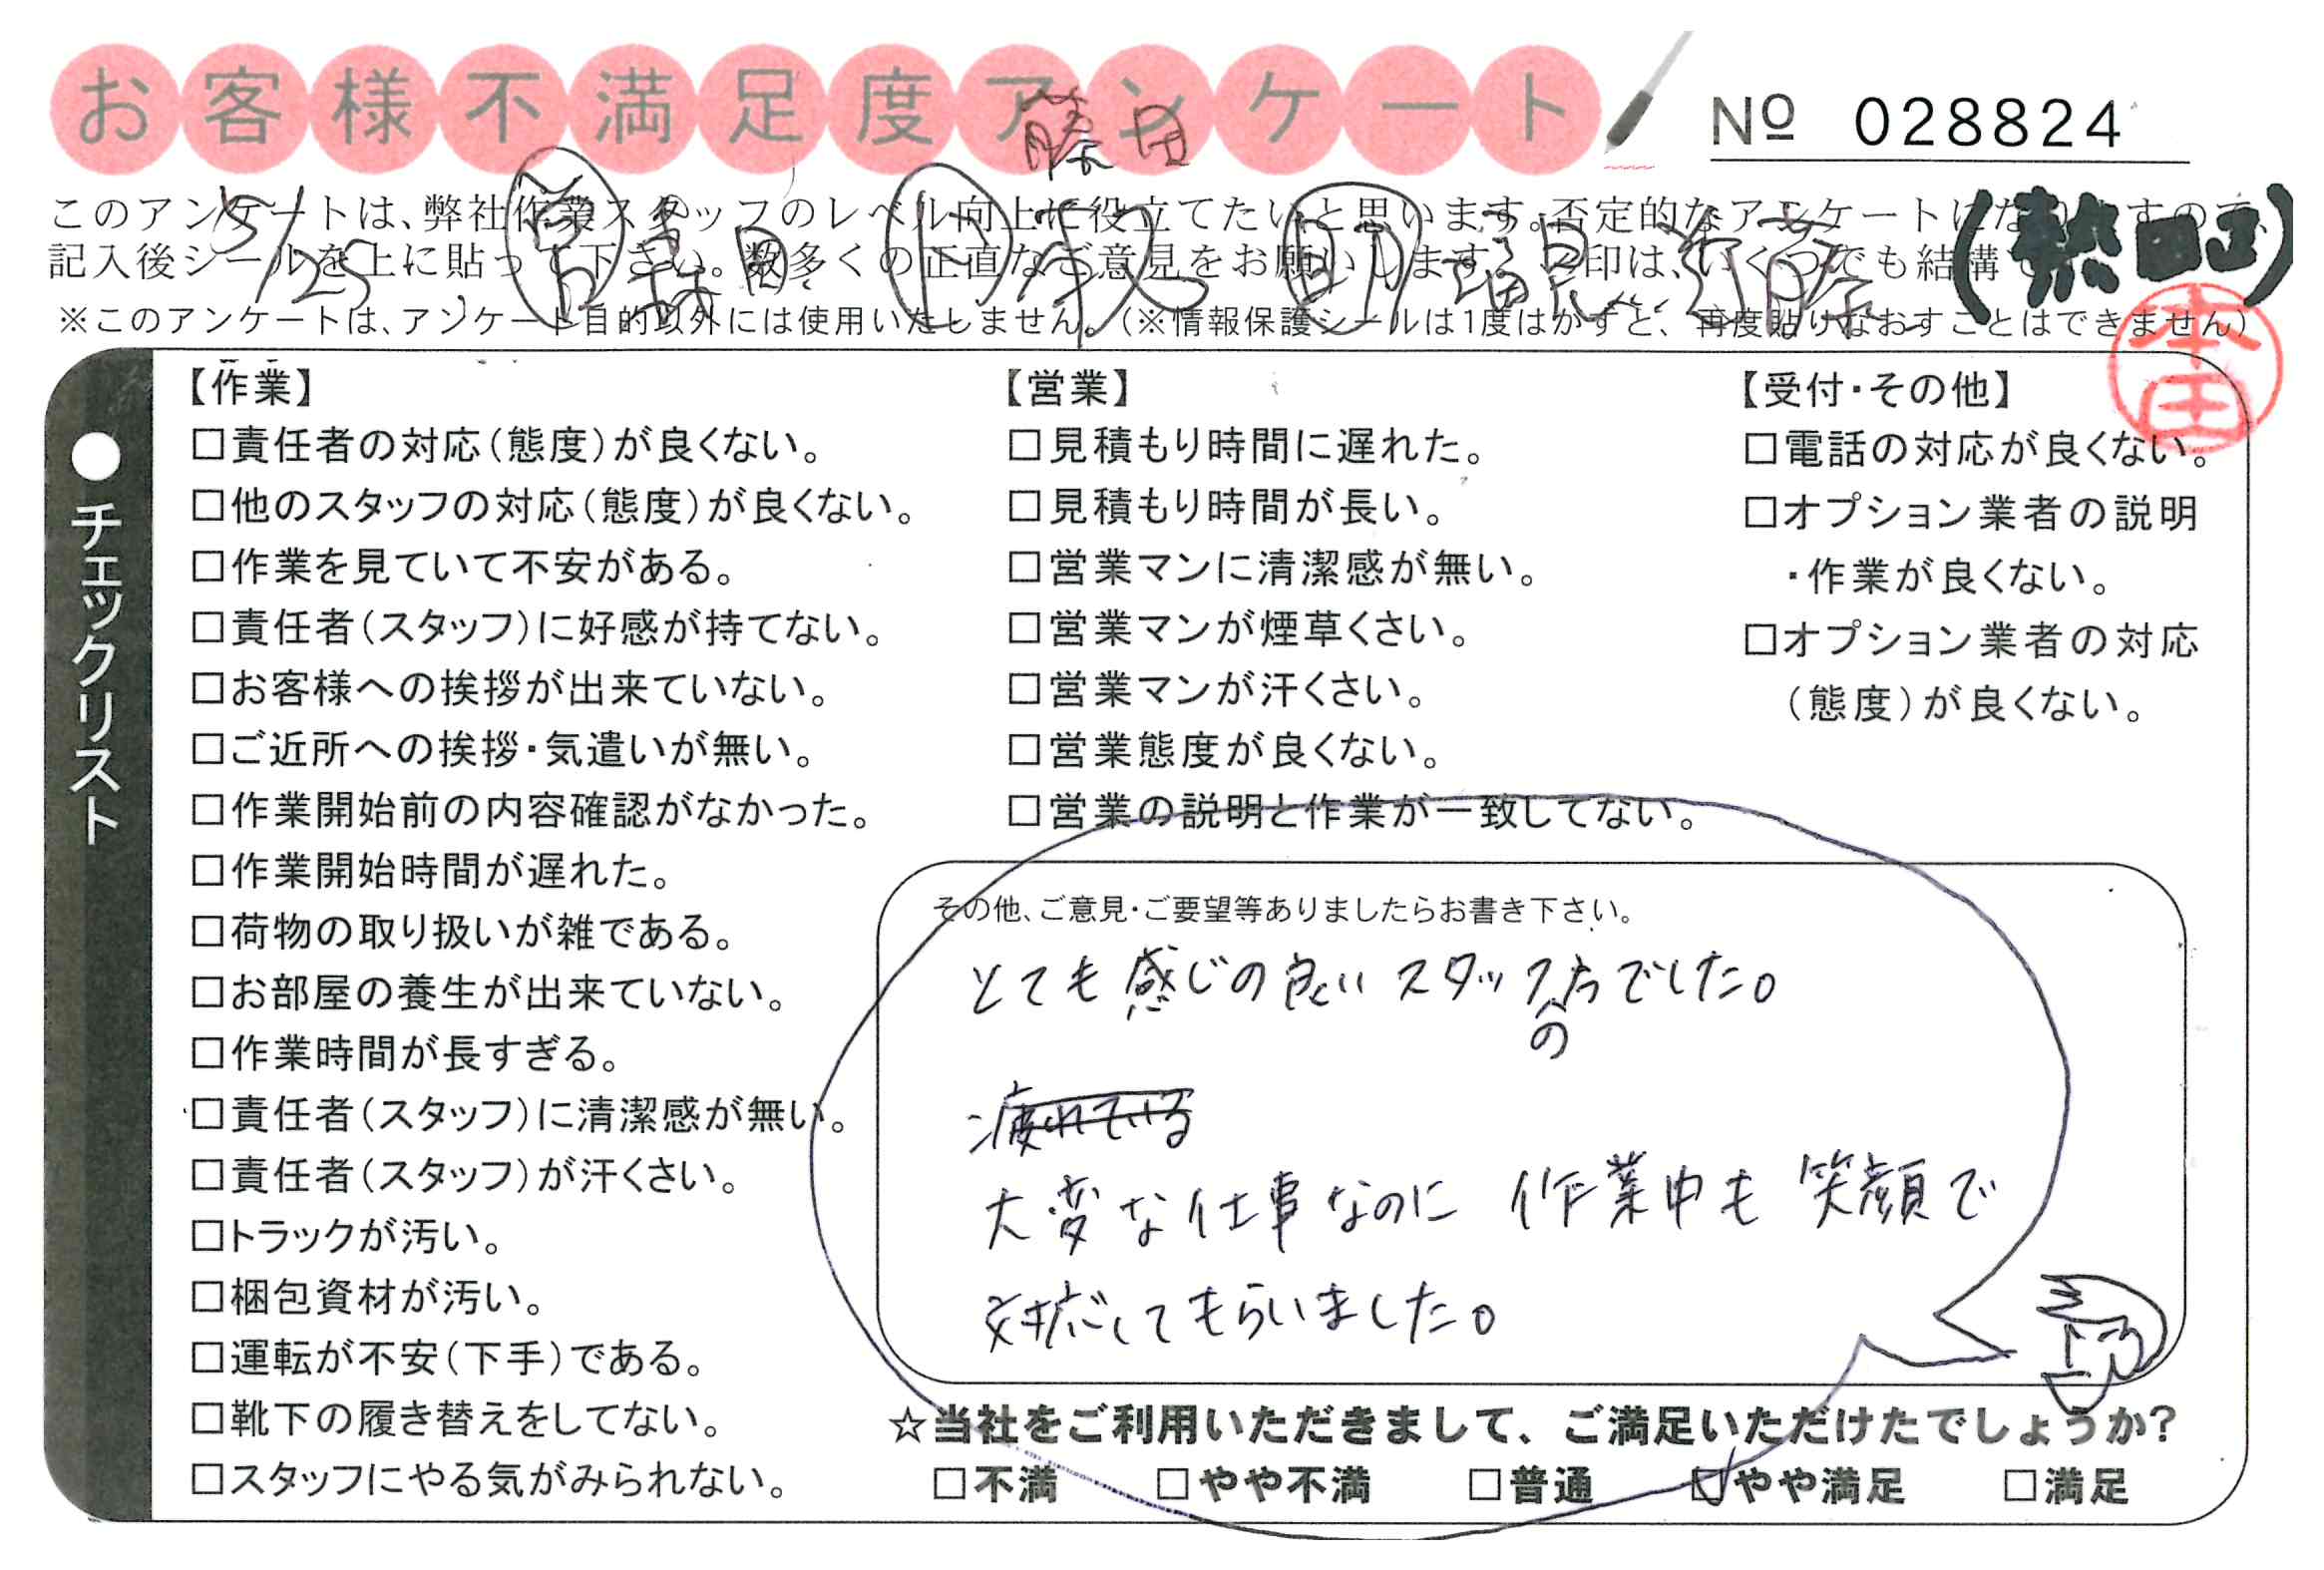 お客様不満足度アンケート
No 028824
藤田
このアンケートは、弊社作業スタッフのレベル向上に役立てたいと思います。否定的なアンケートになりますので、
記入後シールを上に貼って下さい。数多くの正直なご意見をお願いします。✓印は、いくつでも結構です。
5/25 森田
※このアンケートは、アンケート目的以外には使用いたしません。(※情報保護シールは1度はがすと、再度貼りなおすことはできません)
本田
●チェックリスト
【作業】
□責任者の対応(態度)が良くない。
□他のスタッフの対応(態度)が良くない。
□作業を見ていて不安がある。
□責任者(スタッフ)に好感が持てない。
□お客様への挨拶が出来ていない。
□ご近所への挨拶・気遣いが無い。
□作業開始前の内容確認がなかった。
□作業開始時間が遅れた。
□荷物の取り扱いが雑である。
□お部屋の養生が出来ていない。
□作業時間が長すぎる。
□責任者(スタッフ)に清潔感が無い。
□責任者(スタッフ)が汗くさい。
□トラックが汚い。
□梱包資材が汚い。
□運転が不安(下手)である。
□靴下の履き替えをしてない。
□スタッフにやる気がみられない。
【営業】
□見積もり時間に遅れた。
□見積もり時間が長い。
□営業マンに清潔感が無い。
□営業マンが煙草くさい。
□営業マンが汗くさい。
□営業態度が良くない。
□営業の説明と作業が一致してない。
【受付・その他】
□電話の対応が良くない。
□オプション業者の説明
・作業が良くない。
□オプション業者の対応
(態度)が良くない。
その他、ご意見・ご要望等ありましたらお書き下さい。
とても感じの良いスタッフの方でした。
疲れている
大変な仕事なのに 作業中も 笑顔で
対応してもらいました。
☆当社をご利用いただきまして、ご満足いただけたでしょうか?
□不満 □やや不満 □普通 ☑やや満足 □満足